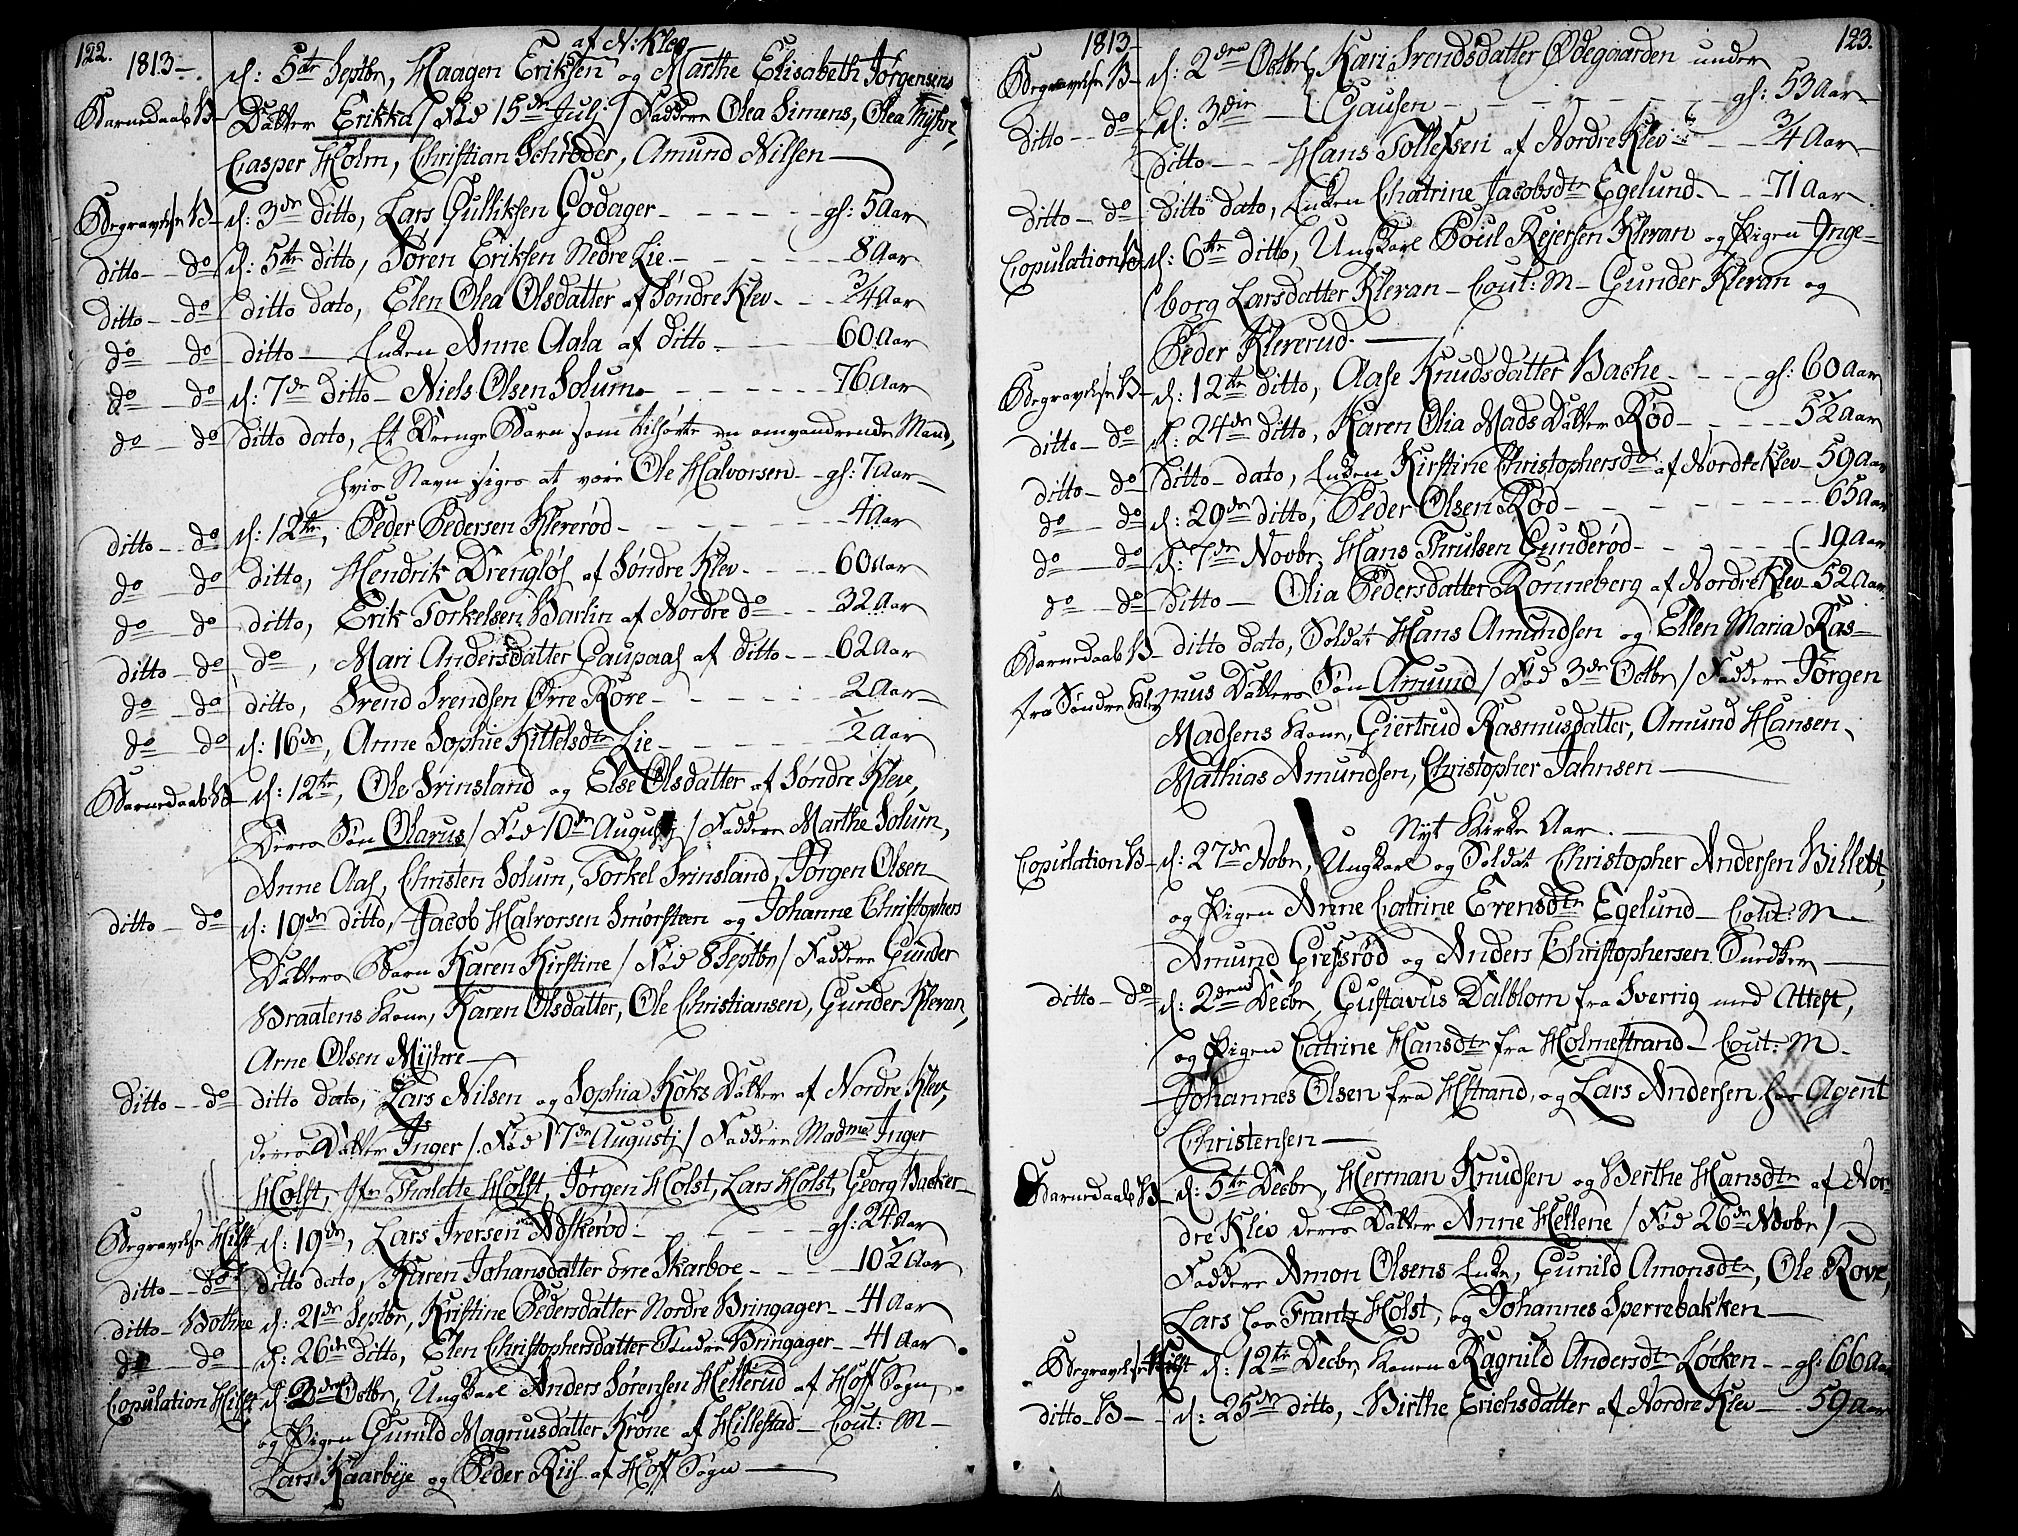 122.
1813-
af N: Klev
d: 5te Septbr, Haagen Eriksen og Marthe Elisabeth Jørgensens
Barnedaab B- Datter Erikka / Fød 15de Julj / Faddere Olea Simens, Olea Myhre,
Casper Holm, Christian Schrøder, Amund Nilsen
Begravelse B- d: 3de ditto, Lars Gulliksen Godager - gl: 5 Aar
ditto - do d: 5te ditto, Søren Eriksen Nedre Lie - 8 Aar
ditto - do ditto dato, Elen Olea Olsdatter af Søndre Klev - 3/4 Aar
do - do ditto - Enken Anne Aala af ditto - 60 Aar
do - do d: 7de ditto - Niels Olsen Solum - 76 Aar
do - do ditto dato, Et Drenge Barn som tilhørte en omvandrende Mand,
hvis Navn siges at være Ole Halvorsen - gl: 7 Aar
ditto - do d: 12te, Peder Pedersen Klererød - 4 Aar
do - do ditto, Hendrik Drengløs af Søndre Klev - 60 Aar
do - do ditto, Erik Torkelsen Barlin af Nordre do - 32 Aar
ditto - do do, Mari Andersdatter Gaupaas af ditto - 62 Aar
do - do ditto, Svend Svendsen Øvre Røre - 2 Aar
do - do d: 16de, Anne Sophie Kittelsdtr Lie - 1/2 Aar
Barnedaab B- d: 12te, Ole Srinsland og Else Olsdatter af Søndre Klev,
Deres Søn Olarus / Fød 10de Augustj / Faddere Marthe Solum,
Anne Aas, Christen Solum, Torkel Srinsland, Jørgen Olsen
ditto - do d: 19de ditto, Jacob Halvorsen Smørsteen og Johanne Christophers
Datters Barn Karen Kirstine / Fød 8 Septbr / Faddere Gunder
Braatens Kone, Karen Olsdatter, Ole Christiansen, Gunder Kleran,
Arne Olsen Myhre
Ditto - do ditto dato, Lars Nilsen og Sophia Koks Datter af Nordre Klev,
deres Datter Inger / Fød 17de Augustj / Faddere Madme Inger
Holst, Jfr Thalette Holst, Jørgen Holst, Lars Holst, Georg Backer
Begravelse Hilst d: 19de, Lars Iversen Askerød - gl: 24 Aar
ditto - do ditto dato, Karen Johansdatter øvre Skarboe - 10 1/2 Aar
ditto - Botne d: 21de Septbr, Kristine Pedersdatter Nordre Bringager - 41 Aar
do - do d: 26de ditto, Elen Christophersdatter Søndre Bringager - 41 Aar
Copulation Hilst d: 2den Octbr, Ungkarl Anders Sørensen Hellerud af Hoff Sogn,
og Pigen Gunild Magnusdatter Krone af Hillestad - Cout: M -
Lars Kaarbye og Peder Riis af Hoff Sogn
1813-
123.
Begravelse B- d: 2den Octbr, Kari Svendsdatter Ødegaarden under
d: 3die Gausen - gl: 53 Aar
ditto - do ditto - Hans Tollefsen af Nordre Klev - 3/4 Aar
ditto - do ditto dato, Enken Chatrine Jacobsdtr Egelund - 71 Aar
Copulation B d: 6te ditto, Ungkarl Poul Rejersen Kleran og Pigen Inge-
borg Larsdatter Kleran - Cout: M - Gunder Kleran og
Peder Klererud -
Begravelse B- d: 12te ditto, Aase Knudsdatter Bache - gl: 60 Aar
ditto - do d: 24de ditto, Karen Olia Mads Datter Rød - 5 1/2 Aar
ditto - do ditto - dato, Enken Kirstine Christophersdtr af Nordre Klev - 59 Aar
do - do d: 29de ditto, Peder Olsen Rød - 65 Aar
do - do d: 7de Novbr, Hans Thrulsen Gunderød - 19 Aar
do - do ditto - Olia Pedersdatter Rønneberg af Nordre Klev - 52 Aar
Barnedaab B- ditto dato, Soldat Hans Amundsen og Ellen Maria Ras-
fra Søndre Klev mus Datters Søn Amund / Fød 3de Octbr / Faddere Jørgen
Madsens Kone, Giertrud Rasmusdatter, Amund Hansen,
Mathias Amundsen, Christopher Jahnsen
Nyt Kirke Aar.
Copulation B- d: 27de Nobr, Ungkarl og Soldat Christopher Andersen Billett,
og Pigen Anne Catrine Evensdtr Egelund - Cout: M -
Amund Grefsrød og Anders Christophersen Snedker
ditto - do d: 2den Decbr, Gustavus Dalblom fra Sverrig med Attest,
og Pigen Catrine Hansdtr fra Holmestrand - Cout: M -
Johannes Olsen fra HStrand, og Lars Andersen hos Agent
Christensen
Barnedaab B- d: 5te Decbr, Herman Knudsen og Berthe Hansdtr af Nor-
dre Klev deres Datter Anne Hellene / Fød 26de Novbr /
Faddere Amon Olsens Enke, Gunild Amonsdtr, Ole Rove,
Lars hos Frantz Holst, og Johannes Sperrebakken
Begravelse Hilst d: 12te Decbr, Konen Ragnild Andersdtr Løcken - gl: 66 Aar
ditto - B - d: 25de ditto, Birthe Erichsdatter af Nordre Klev - 59 Aar